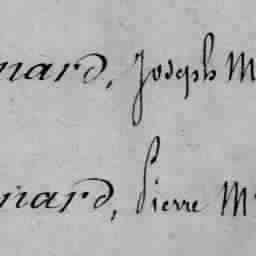 nard, Joseph M
nard, Pierre M